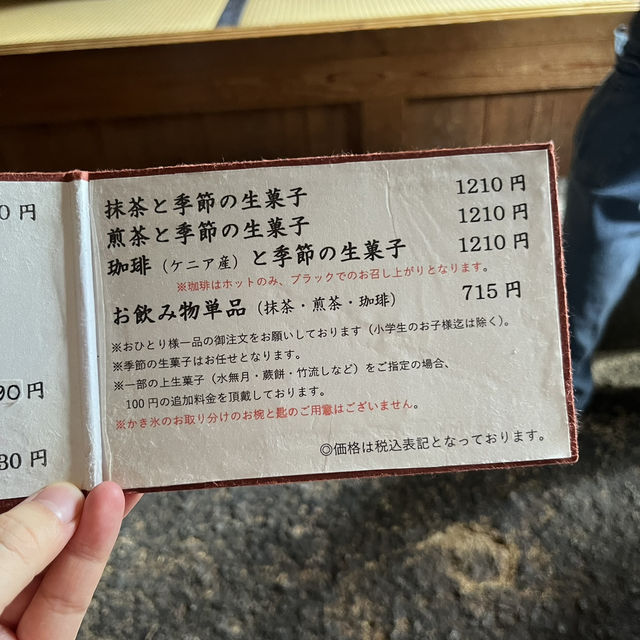 0円
90円
80円
抹茶と季節の生菓子 1210円
煎茶と季節の生菓子 1210円
珈琲（ケニア産）と季節の生菓子 1210円
※珈琲はホットのみ、ブラックでのお召し上がりとなります。
お飲み物単品（抹茶・煎茶・珈琲） 715円
※おひとり様一品の御注文をお願いしております（小学生のお子様迄は除く）。
※季節の生菓子はお任せとなります。
※一部の上生菓子（水無月・蕨餅・竹流しなど）をご指定の場合、
100円の追加料金を頂戴しております。
※かき氷のお取り分けのお椀と匙のご用意はございません。
◎価格は税込表記となっております。